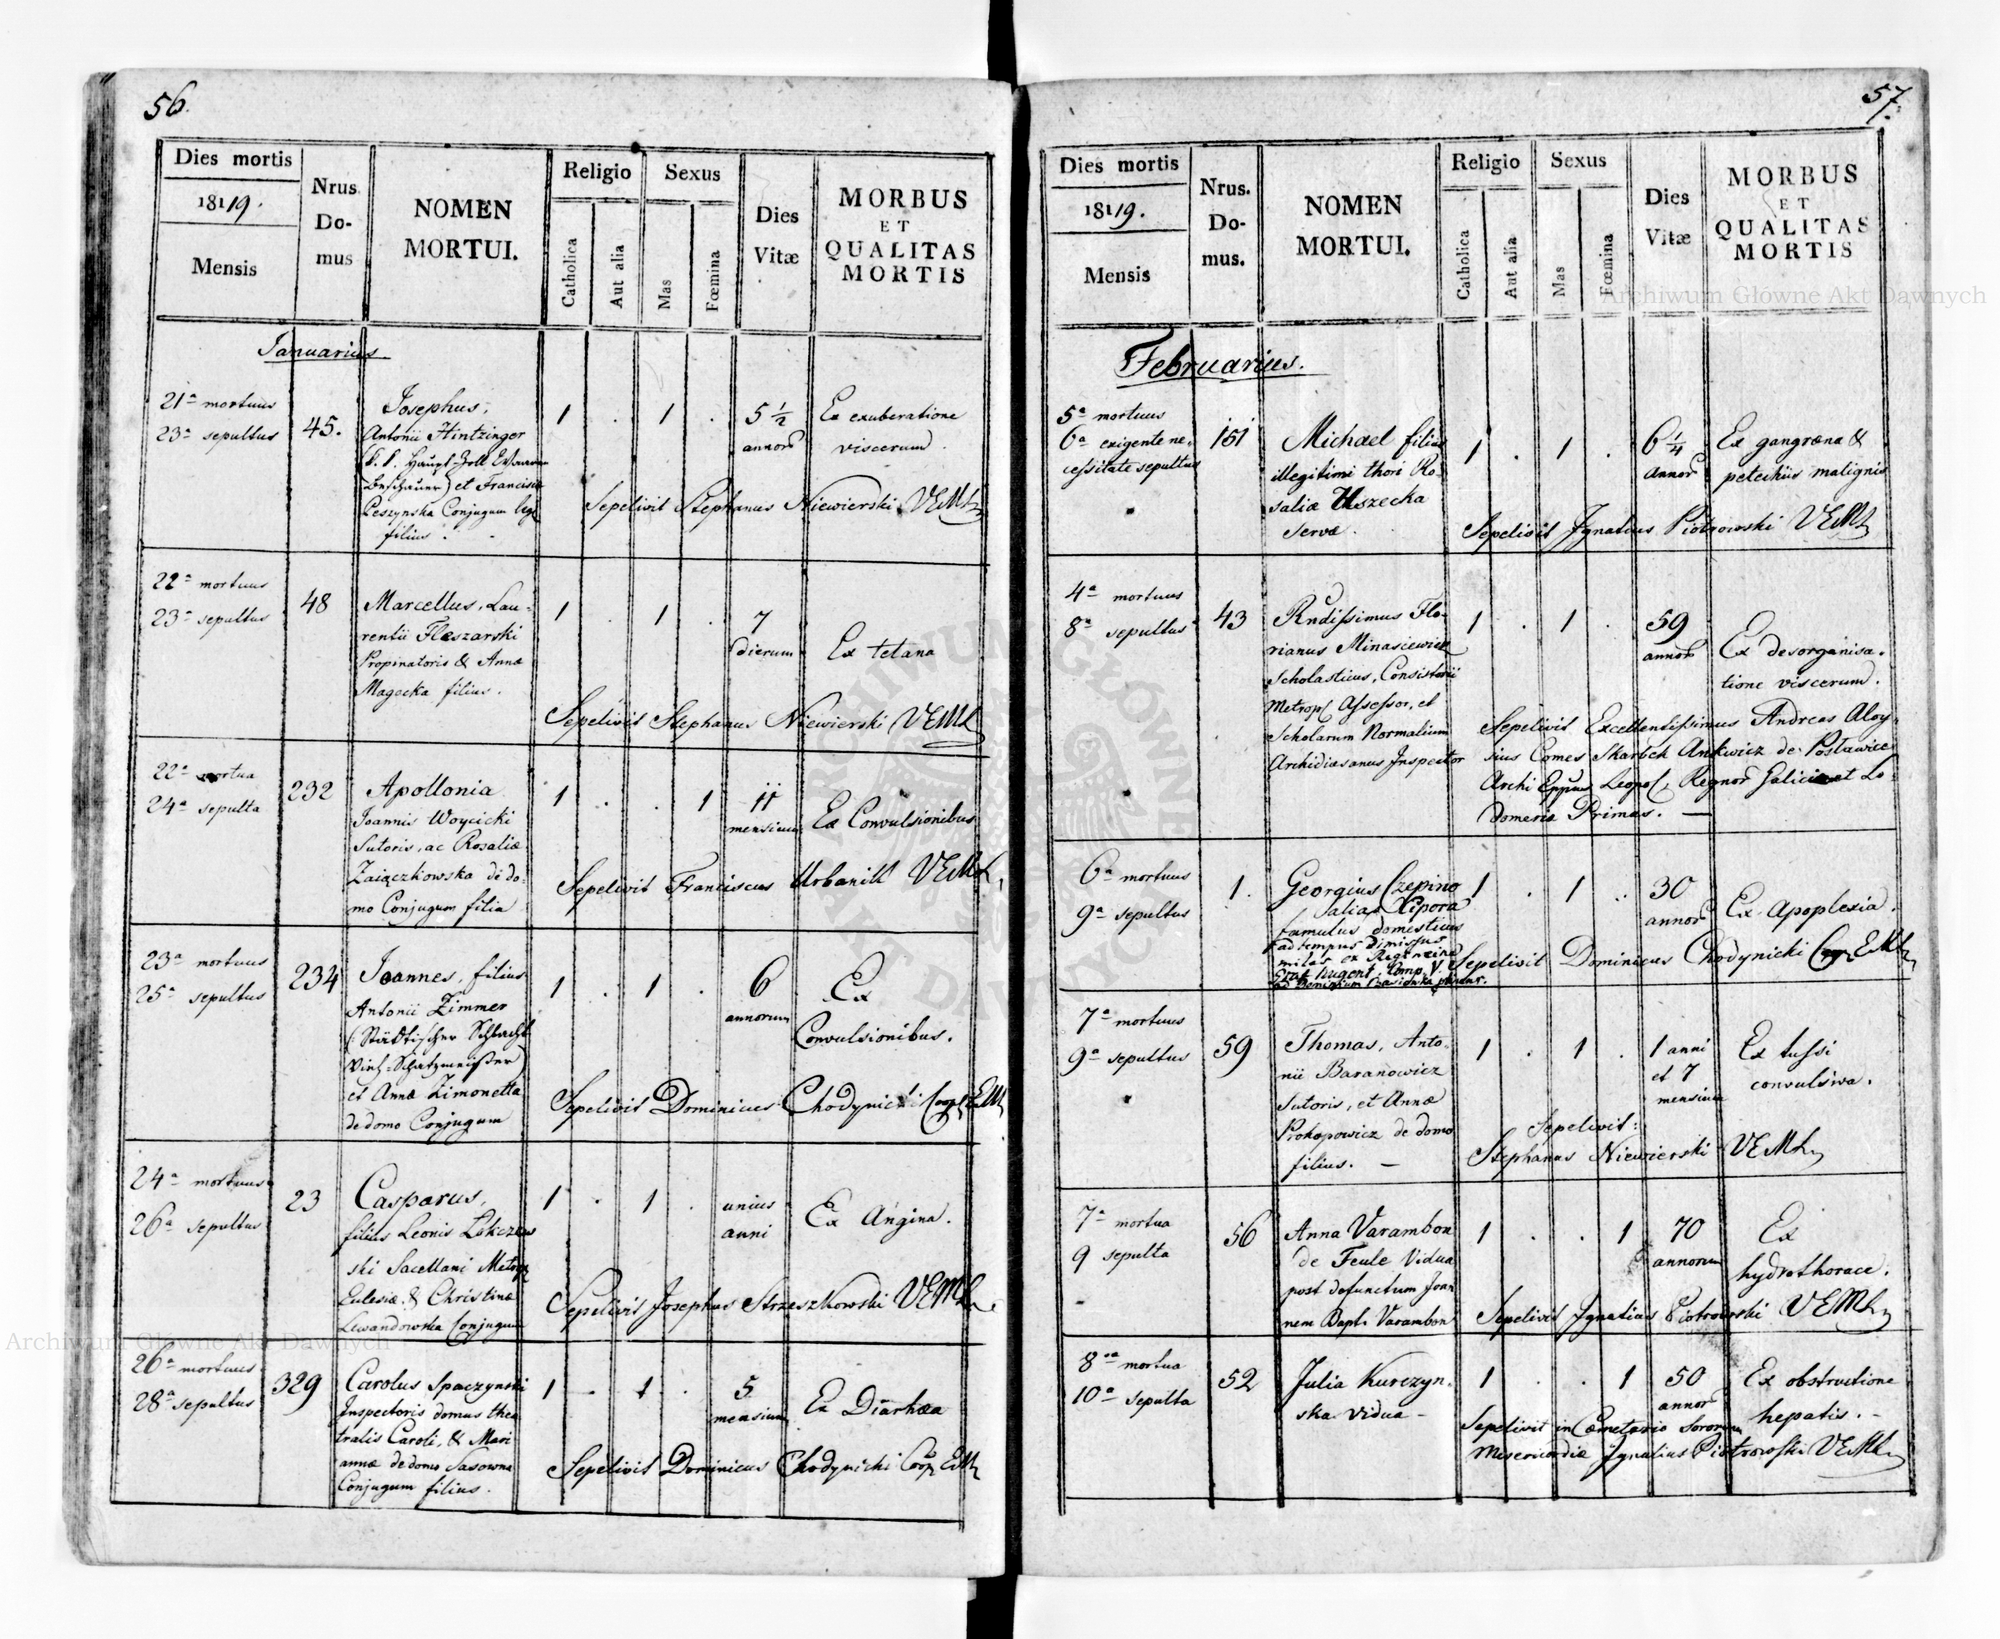 56.
Dies mortis
1819.
Mensis
Nrus.
Do-
mus
NOMEN
MORTUI.
Religio
Catholica
Aut alia
Sexus
Mas
Fœmina
Dies
Vitæ
MORBUS
ET
QUALITAS
MORTIS
Januarius.
21a mortuus
23a sepultus
45.
Josephus,
Antonii Hintzinger
Haupt-Zoll
Beschauer) et Francisca
Peszynska Conjugum
filius.
1 . 1 .
5 1/2
annor
Ex exuberatione
viscerum.
Sepelivit Stephanus Niewierski VEML
22a mortuus
23a sepultus
48
Marcellus, Lau-
rentii Fleszarski
Propinatoris & Annæ
Magecka filius.
1 . 1 .
7
dierum
Ex tetana
Sepelivit Stephanus Niewierski VEML
22a mortua
24a sepulta
232
Apollonia
Joannis Woycicki
Sutoris, ac Rosaliæ
Zaiączkowska de do-
mo Conjugum filia
1 . . 1
11
mensium
Ex Convulsionibus
Sepelivit Franciscus Urbanik VEML.
23a mortuus
25a sepultus
234
Joannes, filius
Antonii Zimmer
(Städtischer Schlacht
Vieh-Schatzmeister)
et Annæ Zimonetta
de domo Conjugum
1 . 1 .
6
annorum
Ex
Convulsionibus.
Sepelivit Dominicus Chodynicki Coop EML
24a mortuus
26a sepultus
23
Casparus,
filius Leonis
ski Sacellani Metrop
Eclesiæ & Christinæ
Lewandowska Conjugum
1 . 1 .
unius
anni
Ex Angina.
Sepelivit Josephus Strzeszkowski VEML
26a mortuus
28a sepultus
329
Carolus Spaczynski
Inspectoris domus thea
tralis Caroli, & Mari
annæ de domo Sasowna
Conjugum filius.
1 . 1 .
5
mensium
Ex Diarhæa
Sepelivit Dominicus Chodynicki Coop EML
57.
Dies mortis
1819.
Mensis
Nrus.
Do-
mus.
NOMEN
MORTUI.
Religio
Catholica
Aut alia
Sexus
Mas
Fœmina
Dies
Vitæ
MORBUS
ET
QUALITAS
MORTIS
Februarius.
5a mortuus
6a exigente ne-
cessitate sepultus
151
Michael filius
illegitimi thori Ro-
saliæ
Servæ.
1 . 1 .
6 1/4
annor
Ex gangræna &
petechiis malignis
Sepelivit Ignatius Piotrowski VEML
4a mortuus
8a sepultus
43
Rndissimus Flo-
rianus Minasiewicz
Scholasticus, Consistorii
Metropl Assessor, et
Scholarum Normalium
Archidiæsanus Inspector
1 . 1 .
59
annor
Ex desorganisa-
tione viscerum.
Sepelivit Excellentissimus Andreas Aloy-
sius Comes Skarbek Ankwicz de Posławice
Archi Eppus Leopol, Regnor Galiciæ et Lo-
domeriæ Primas. —
6a mortuus
9a sepultus
1.
Georgius Czepino
famulus domesticus
ad tempus dimissus
miles ex Regimine
1 . 1 .
30
annor
Ex Apoplexia.
Sepelivit Dominicus Chodynicki Coop EML
7a mortuus
9a sepultus
59
Thomas, Anto-
nii Baranowicz
Sutoris, et Annæ
Prokopowicz de domo
filius. —
1 . 1 .
1 anni
et 7
mensium
Ex tussi
convulsiva.
Sepelivit:
Stephanus Niewierski VEML
7a mortua
9 sepulta
56
Anna Varambon
de Feule Vidua
post defunctum Joan
nem Bapt. Varambon
1 . . 1
70
annorum
Ex
hydrothorace.
Sepelivit Ignatius Piotrowski VEML
8va mortua
10a sepulta
52
Julia Kurczyn-
ska Vidua —
1 . . 1
50
annor
Ex obstructione
hepatis. —
Sepelivit in Cœmetario Sororum
Misericordiæ Ignatius Piotrowski VEML
Archiwum Główne Akt Dawnych
Archiwum Główne Akt Dawnych
ARCHIWUM GŁÓWNE AKT DAWNYCH